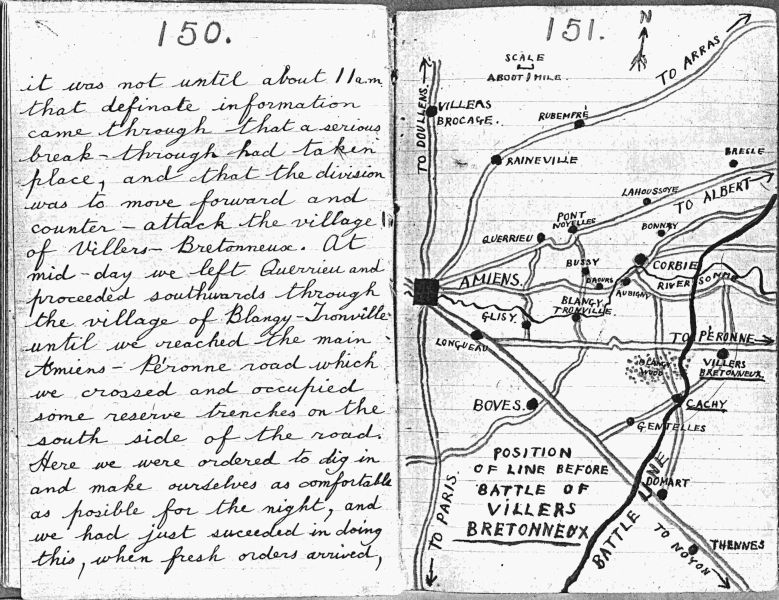 150.
it was not until about 11am
that definate information
came through that a serious
break-through had taken
place, and that the division
was to move forward and
counter-attack the village
of Villers-Bretonneux. At
mid-day we left Querrieu and
proceeded southwards through
the village of Blangy-Tronville
until we reached the main
Amiens-Péronne road which
we crossed and occupied
some reserve trenches on the
south side of the road.
Here we were ordered to dig in
and make ourselves as comfortable
as posible for the night, and
we had just suceeded in doing
this, when fresh orders arrived,
151.
N
SCALE
ABOUT 1 MILE.
TO ARRAS
TO DOULLENS.
VILLERS
BROCAGE.
RUBEMPRÉ
RAINEVILLE
BRESLE
LAHOUSSOYE
TO ALBERT
PONT
NOYELLES
BONNAY
QUERRIEU
BUSSY
CORBIE
AMIENS.
DAOURS
AUBIGNY
RIVER SOMME
BLANGY
TRONVILLE
GLISY
LONGUEAU
TO PÉRONNE
BLANGY
WOOD
VILLERS
BRETONNEUX
BOVES.
CACHY
GENTELLES
POSITION
OF LINE BEFORE
BATTLE OF
VILLERS
BRETONNEUX
BATTLE LINE
DOMART
TO PARIS.
TO NOYON
THENNES